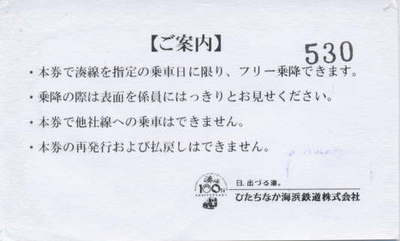 【ご案内】
530
・本券で湊線を指定の乗車日に限り、フリー乗降できます。
・乗降の際は表面を係員にはっきりとお見せください。
・本券で他社線への乗車はできません。
・本券の再発行および払戻しはできません。
100th
日、出づる湊。
ひたちなか海浜鉄道株式会社